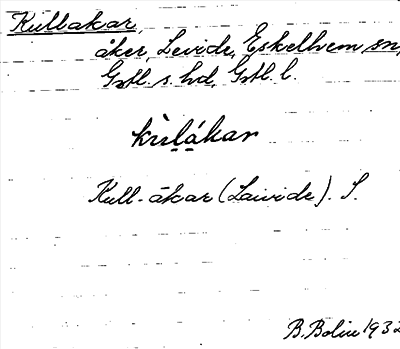 Kullakar,
åker, Levide, Eskelhem sn,
Gotl. s. hd, Gotl. l.
kùlákar
Kull-åkar (Laivide). S.
B. Bolin 1932